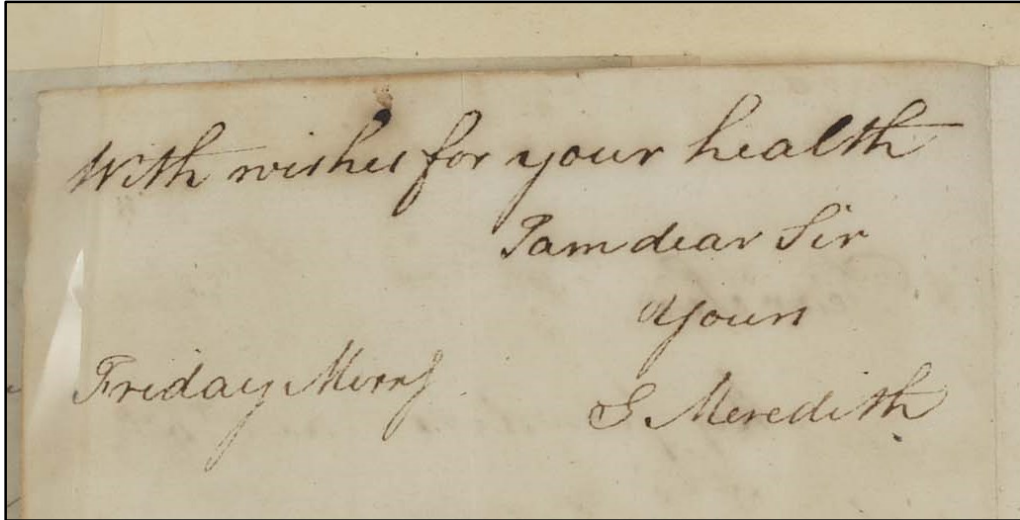 With wishes for your health
I am dear Sir
Yours
Friday Morng S Meredith